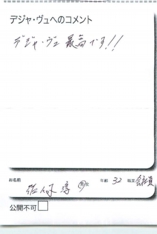 デジャ・ヴュへのコメント
デジャ・ヴュ 最高です!!
お名前
年齢 32 職業 会社員
公開不可